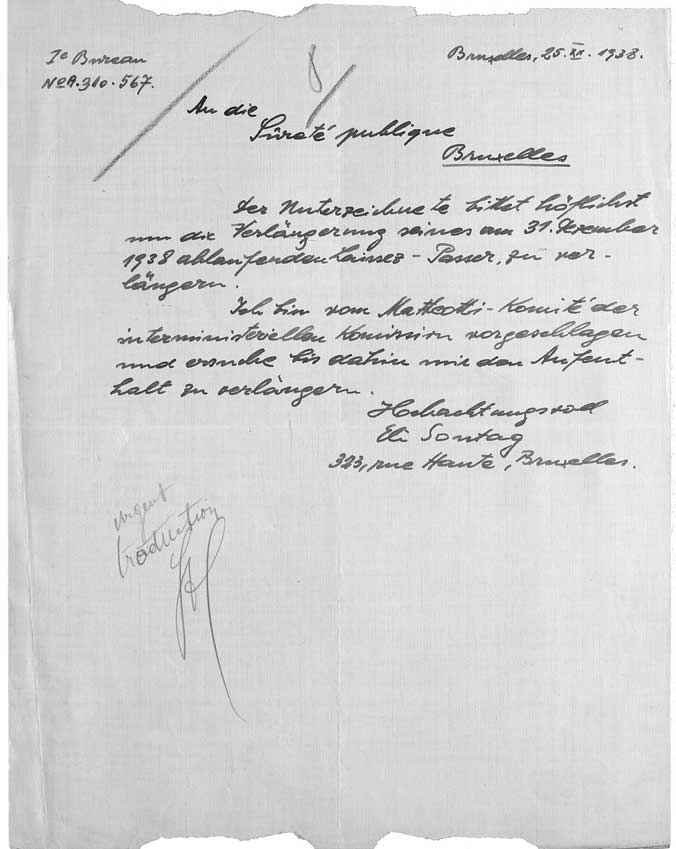 Ie Bureau
No A. 310. 567.
Bruxelles, 25. XII. 1938.
An die
Sûreté publique
Bruxelles
Der Unterzeichnete bittet höflichst
um die Verlängerung seines am 31. Dezember
1938 ablaufenden Laissez-Passer, zu ver-
längern.
Ich bin vom Matteotti-Komité der
interministeriellen Komission vorgeschlagen
und ersuche bis dahin mir den Aufent-
halt zu verlängern.
Hochachtungsvoll
Eli Sontag
323, rue Haute, Bruxelles.
urgent
traduction